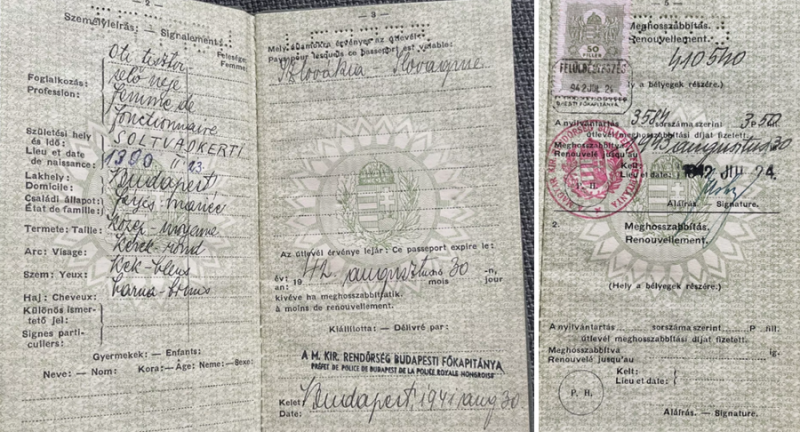 — 2 —
Személyleírás: — Signalement:
Feleség
Femme:
Foglalkozás:
Profession:
neje
femme de
fonctionnaire
Születési hely
és idő:
Lieu et date
de naissance:
SOLTVADKERT
1900 II 23
Lakhely:
Domicile:
Budapest
Családi állapot:
État de famille:
Termete: Taille:
közép moyenne
Arc: Visage:
kerek - rond
Szem: Yeux:
kék - bleus
Haj: Cheveux:
barna - bruns
Különös ismer-
tető jel:
Signes parti-
culiers:
Gyermekek: — Enfants:
Neve: — Nom: Kora: — Âge: Neme: — Sexe:
— 3 —
Mely államokra érvényes az útlevél:
Pays pour lesquels ce passeport est valable:
Szlovákia Slovaquie
Az útlevél érvénye lejár: Ce passeport expire le:
évi 19 42. augusztus hó 30 -n,
an: mois jour
kivéve ha meghosszabbittatik.
à moins de renouvellement.
Kiállította: — Délivré par:
A M. KIR. RENDŐRSÉG BUDAPESTI FŐKAPITÁNYA
PRÉFET DE POLICE DE BUDAPEST DE LA POLICE ROYALE HONGROISE
Kelet:
Date:
Budapest, 1941 aug 30.
— 5 —
Meghosszabbítás.
Renouvellement.
50
FILLÉR
410540
(Hely a bélyegek részére.)
942 JUL 24
A nyilvántartás 3584 sorszáma szerint P
útlevél meghosszabbítási díjat fizetett.
Meghosszabbítva
Renouvelé jusqu'au
943 augusztus 30
Kelt:
Lieu et date:
1942 JUL 24.
Aláírás. — Signature.
2.
Meghosszabbítás.
Renouvellement.
(Hely a bélyegek részére.)
A nyilvántartás sorszáma szerint P fil.
útlevél meghosszabbítási díjat fizetett.
Meghosszabbítva
Renouvelé jusqu'au ig.
Kelt:
Lieu et date:
P. H.
Aláírás. — Signature.